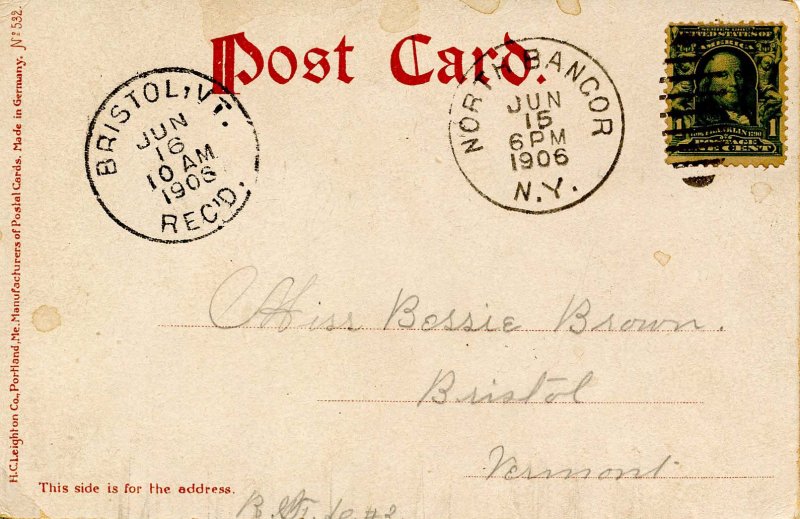 Post Card.
BRISTOL, VT.
JUN
16
10 AM
1906
REC'D.
NORTH BANGOR
JUN
15
6 PM
1906
N.Y.
SERIES 1902
UNITED STATES OF
AMERICA
1 1
FRANKLIN 1790
POSTAGE
ONE CENT
Miss Bessie Brown.
Bristol
Vermont
This side is for the address.
H.C. Leighton Co., Portland, Me. Manufacturers of Postal Cards. Made in Germany. Nº 532.